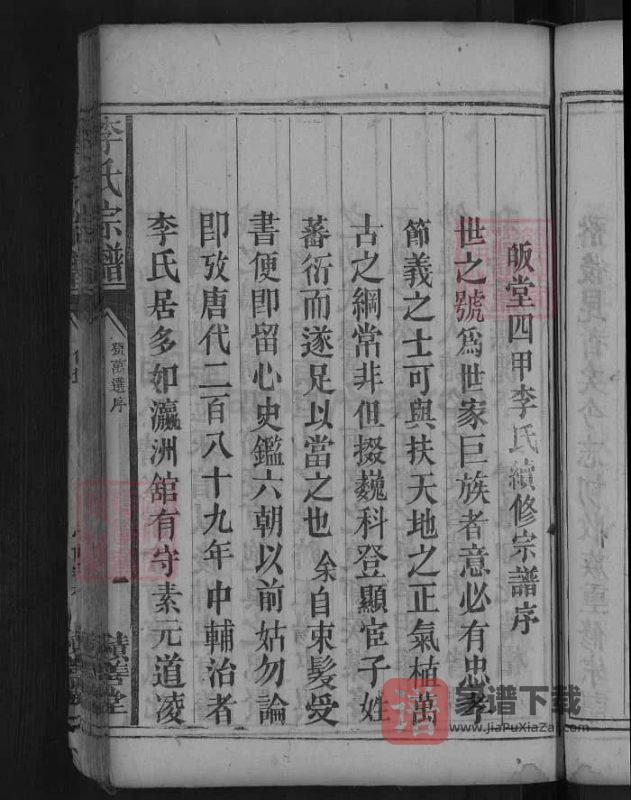 皈堂四甲李氏續修宗譜序
世之號爲世家巨族者意必有忠孝
節義之士可與扶天地之正氣植萬
古之綱常非但掇巍科登顯宦子姓
蕃衍而遂足以當之也余自束髮受
書便即留心史鑑六朝以前姑勿論
即攷唐代二百八十九年中輔治者
李氏居多如瀛洲舘有守素元道淩
李氏宗譜
萬選序
積善堂
譜
家谱下载
www.JiaPuXiaZai.com